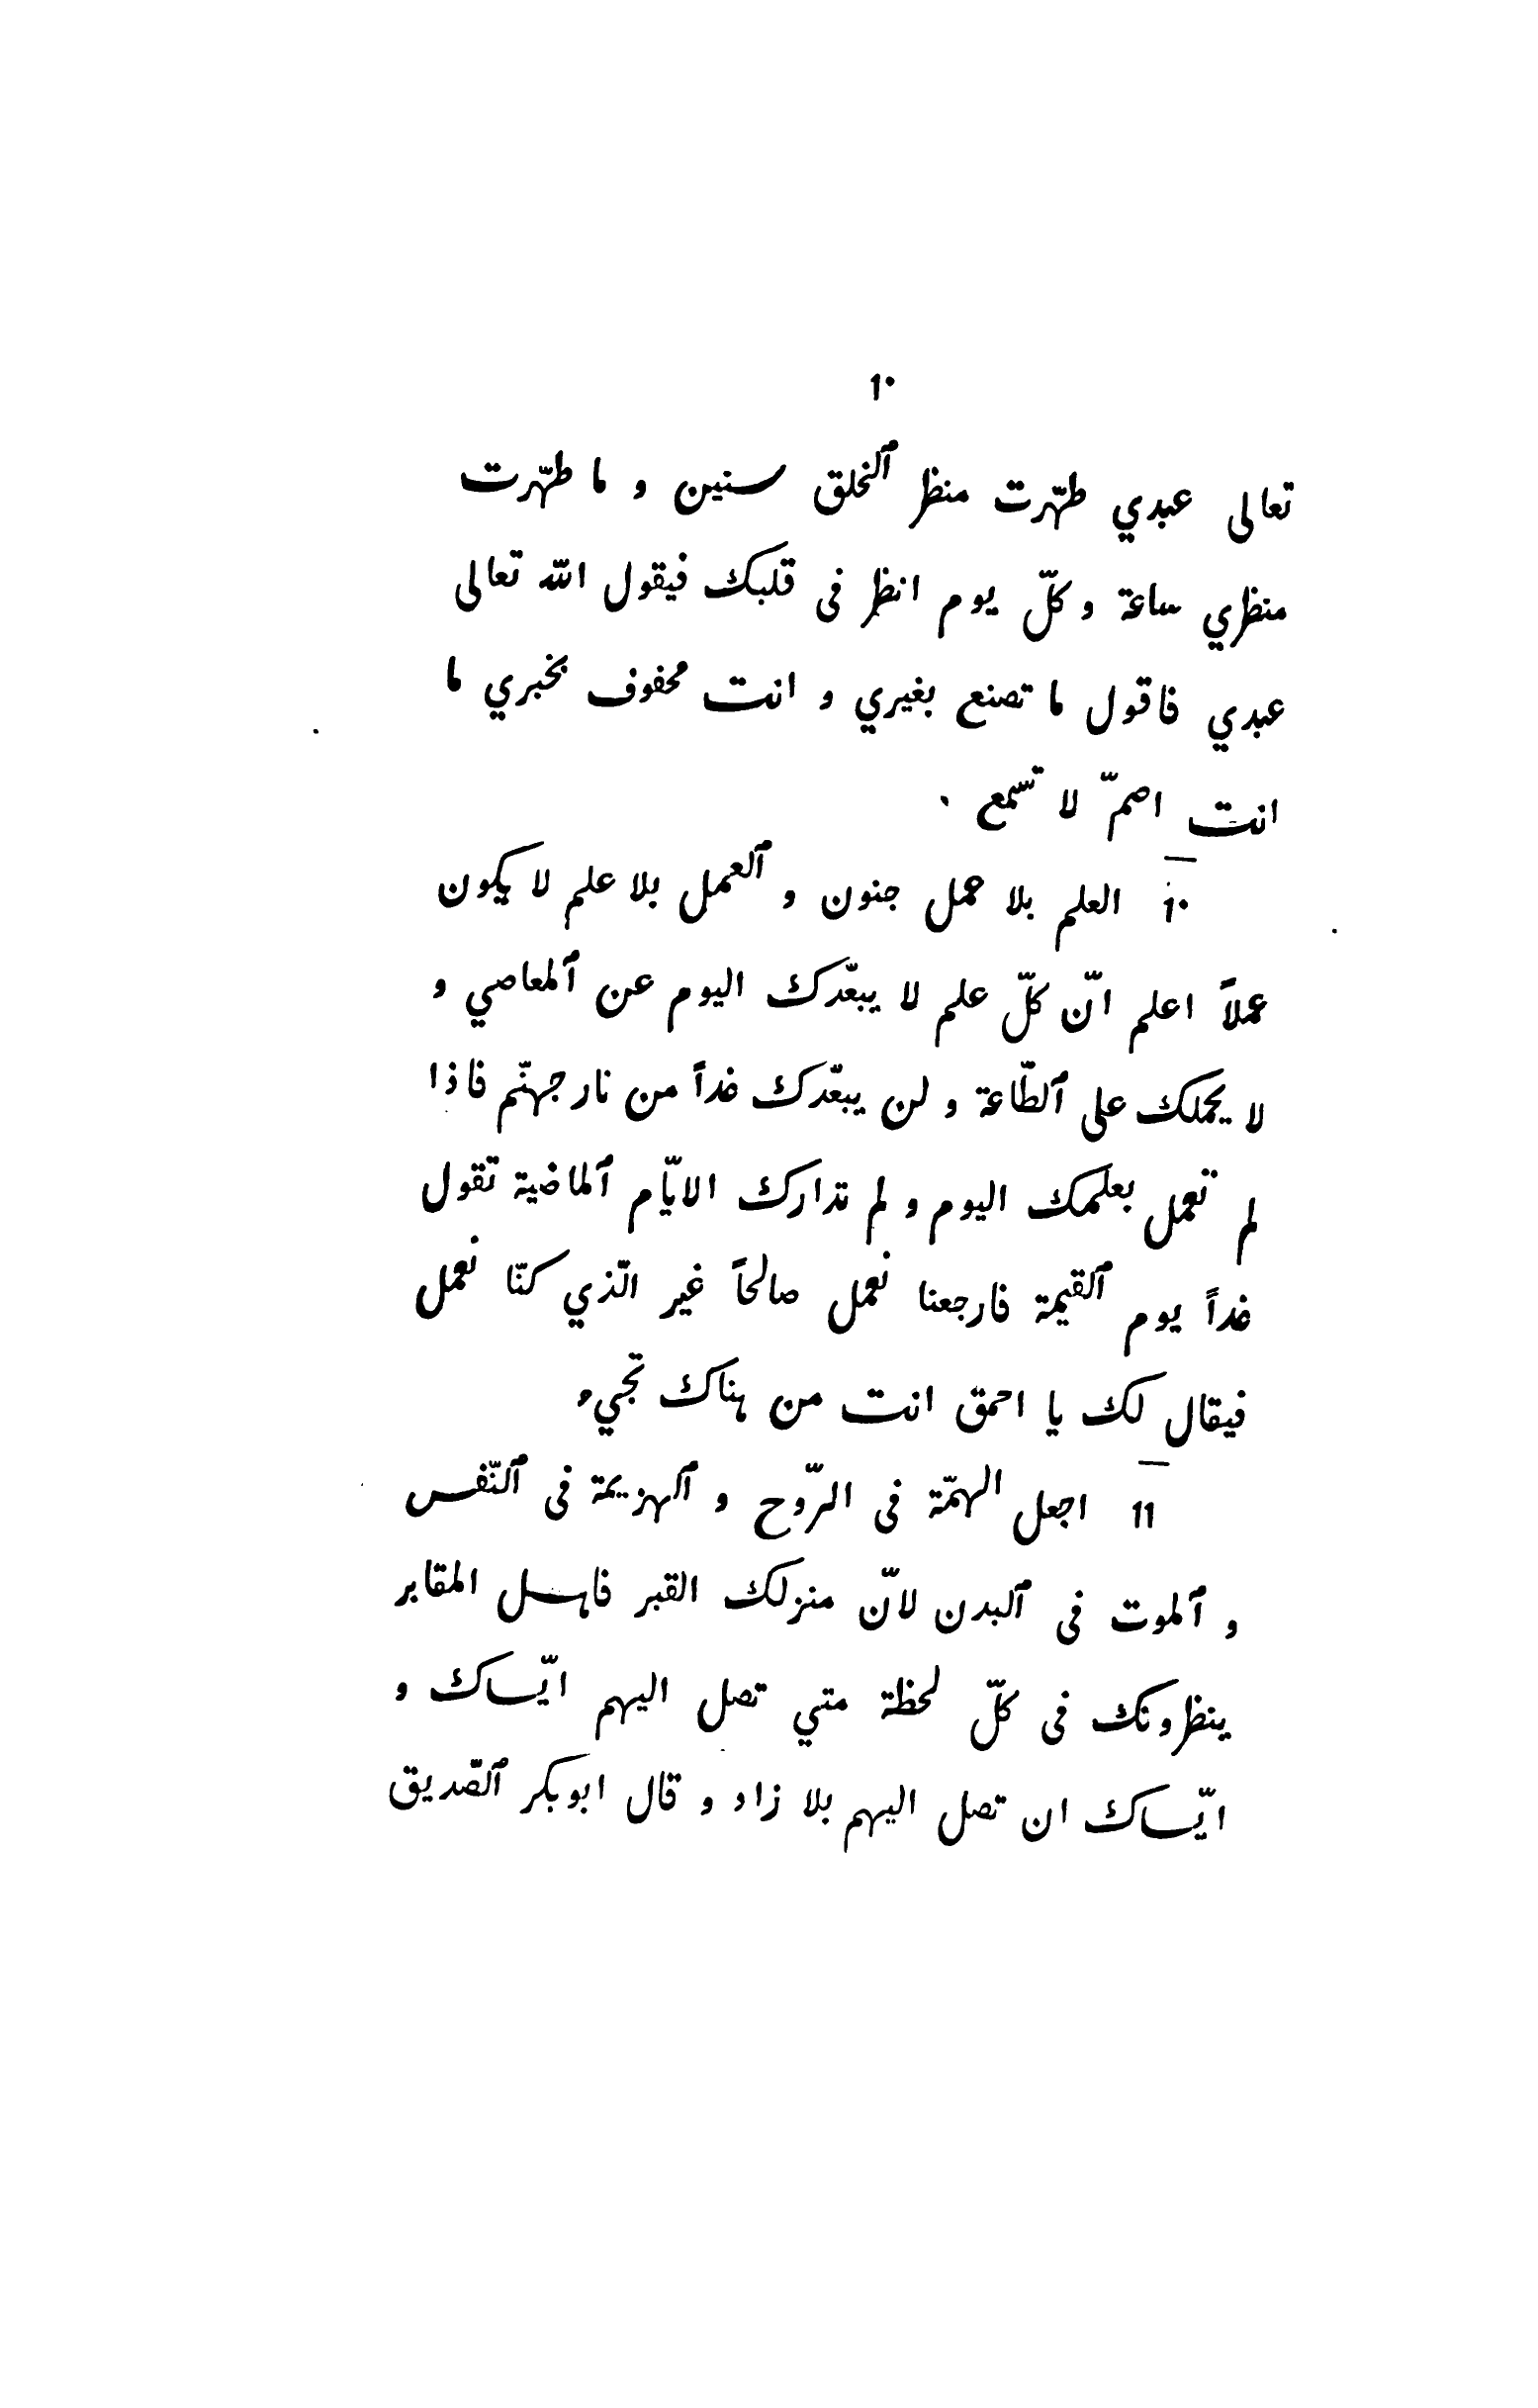 ١٠
تعالى عبدي طهّرت منظر ٱلخلق سنين و ما طهّرت
منظري ساعة و كلّ يوم انظر فى قلبك فيقول اللّه تعالى
عبدي فاقول ما تصنع بغيري و انت محفوف بخبري ما
انت اصمّ لا تسمع .
١٠ العلم بلا عمل جنون و ٱلعمل بلا علم لا يكون
عملاً اعلم انّ كلّ علم لا يبعّدك اليوم عن ٱلمعاصي و
لا يحملك على ٱلطّاعة و لن يبعّدك غداً من نار جهنّم فاذا
لم تعمل بعلمك اليوم و لم تدارك الايّام ٱلماضية تقول
غداً يوم ٱلقيمة فارجعنا نعمل صالحاً غير الّذي كنّا نعمل
فيقال لك يا احمق انت من هناك تجيء
١١ اجعل الهمّة فى الرّوح و ٱلهزيمة فى ٱلنّفس
و ٱلموت فى ٱلبدن لانّ منزلك القبر فاهل المقابر
ينظرونك فى كلّ لحظة متي تصل اليهم ايّاك و
ايّاك ان تصل اليهم بلا زاد و قال ابوبكر ٱلصّديق